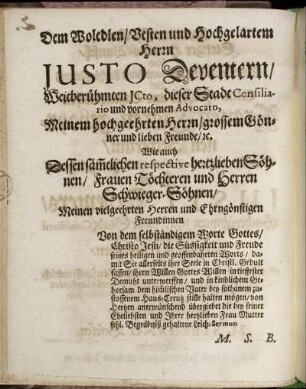 Dem Woledlen/ Vesten und Hochgelartem
Herrn
JUSTO Deventern/
Weitberühmten JCto, dieser Stadt Consilia-
rio und vornehmen Advocato,
Meinem hochgeehrten Herrn/ grossem Gön-
ner und lieben Freunde/ ꝛc.
Wie auch
Dessen sämelichen respective hertzlieben Söh-
nen/ Frauen Töchteren und Herren
Schwieger-Söhnen/
Meinen vielgeehrten Herren und Ehrngönstigen
Freundinnen
Von dem selbständigem Worte Gottes/
Christo Jesu/ die Süssigkeit und Freude
seines heiligen und geoffenbahrten Worts/ da-
mit Sie allerseits ihre Seele in Christl. Gedult
fassen/ ihren Willen Gottes Willen in tieffester
Demuht unterwerffen/ und in kindlichem Ge-
horsam dem himlischen Vater bey sothanem zu-
stossenem Haus-Creutz stille halten mögen/ von
Hertzen anerwünschend übergiebet die bey seiner
Eheliebsten und Ihrer hertzlieben Frau Mutter
sehl. Begräbniß gehaltene Leich-Sermon
M. S. B.